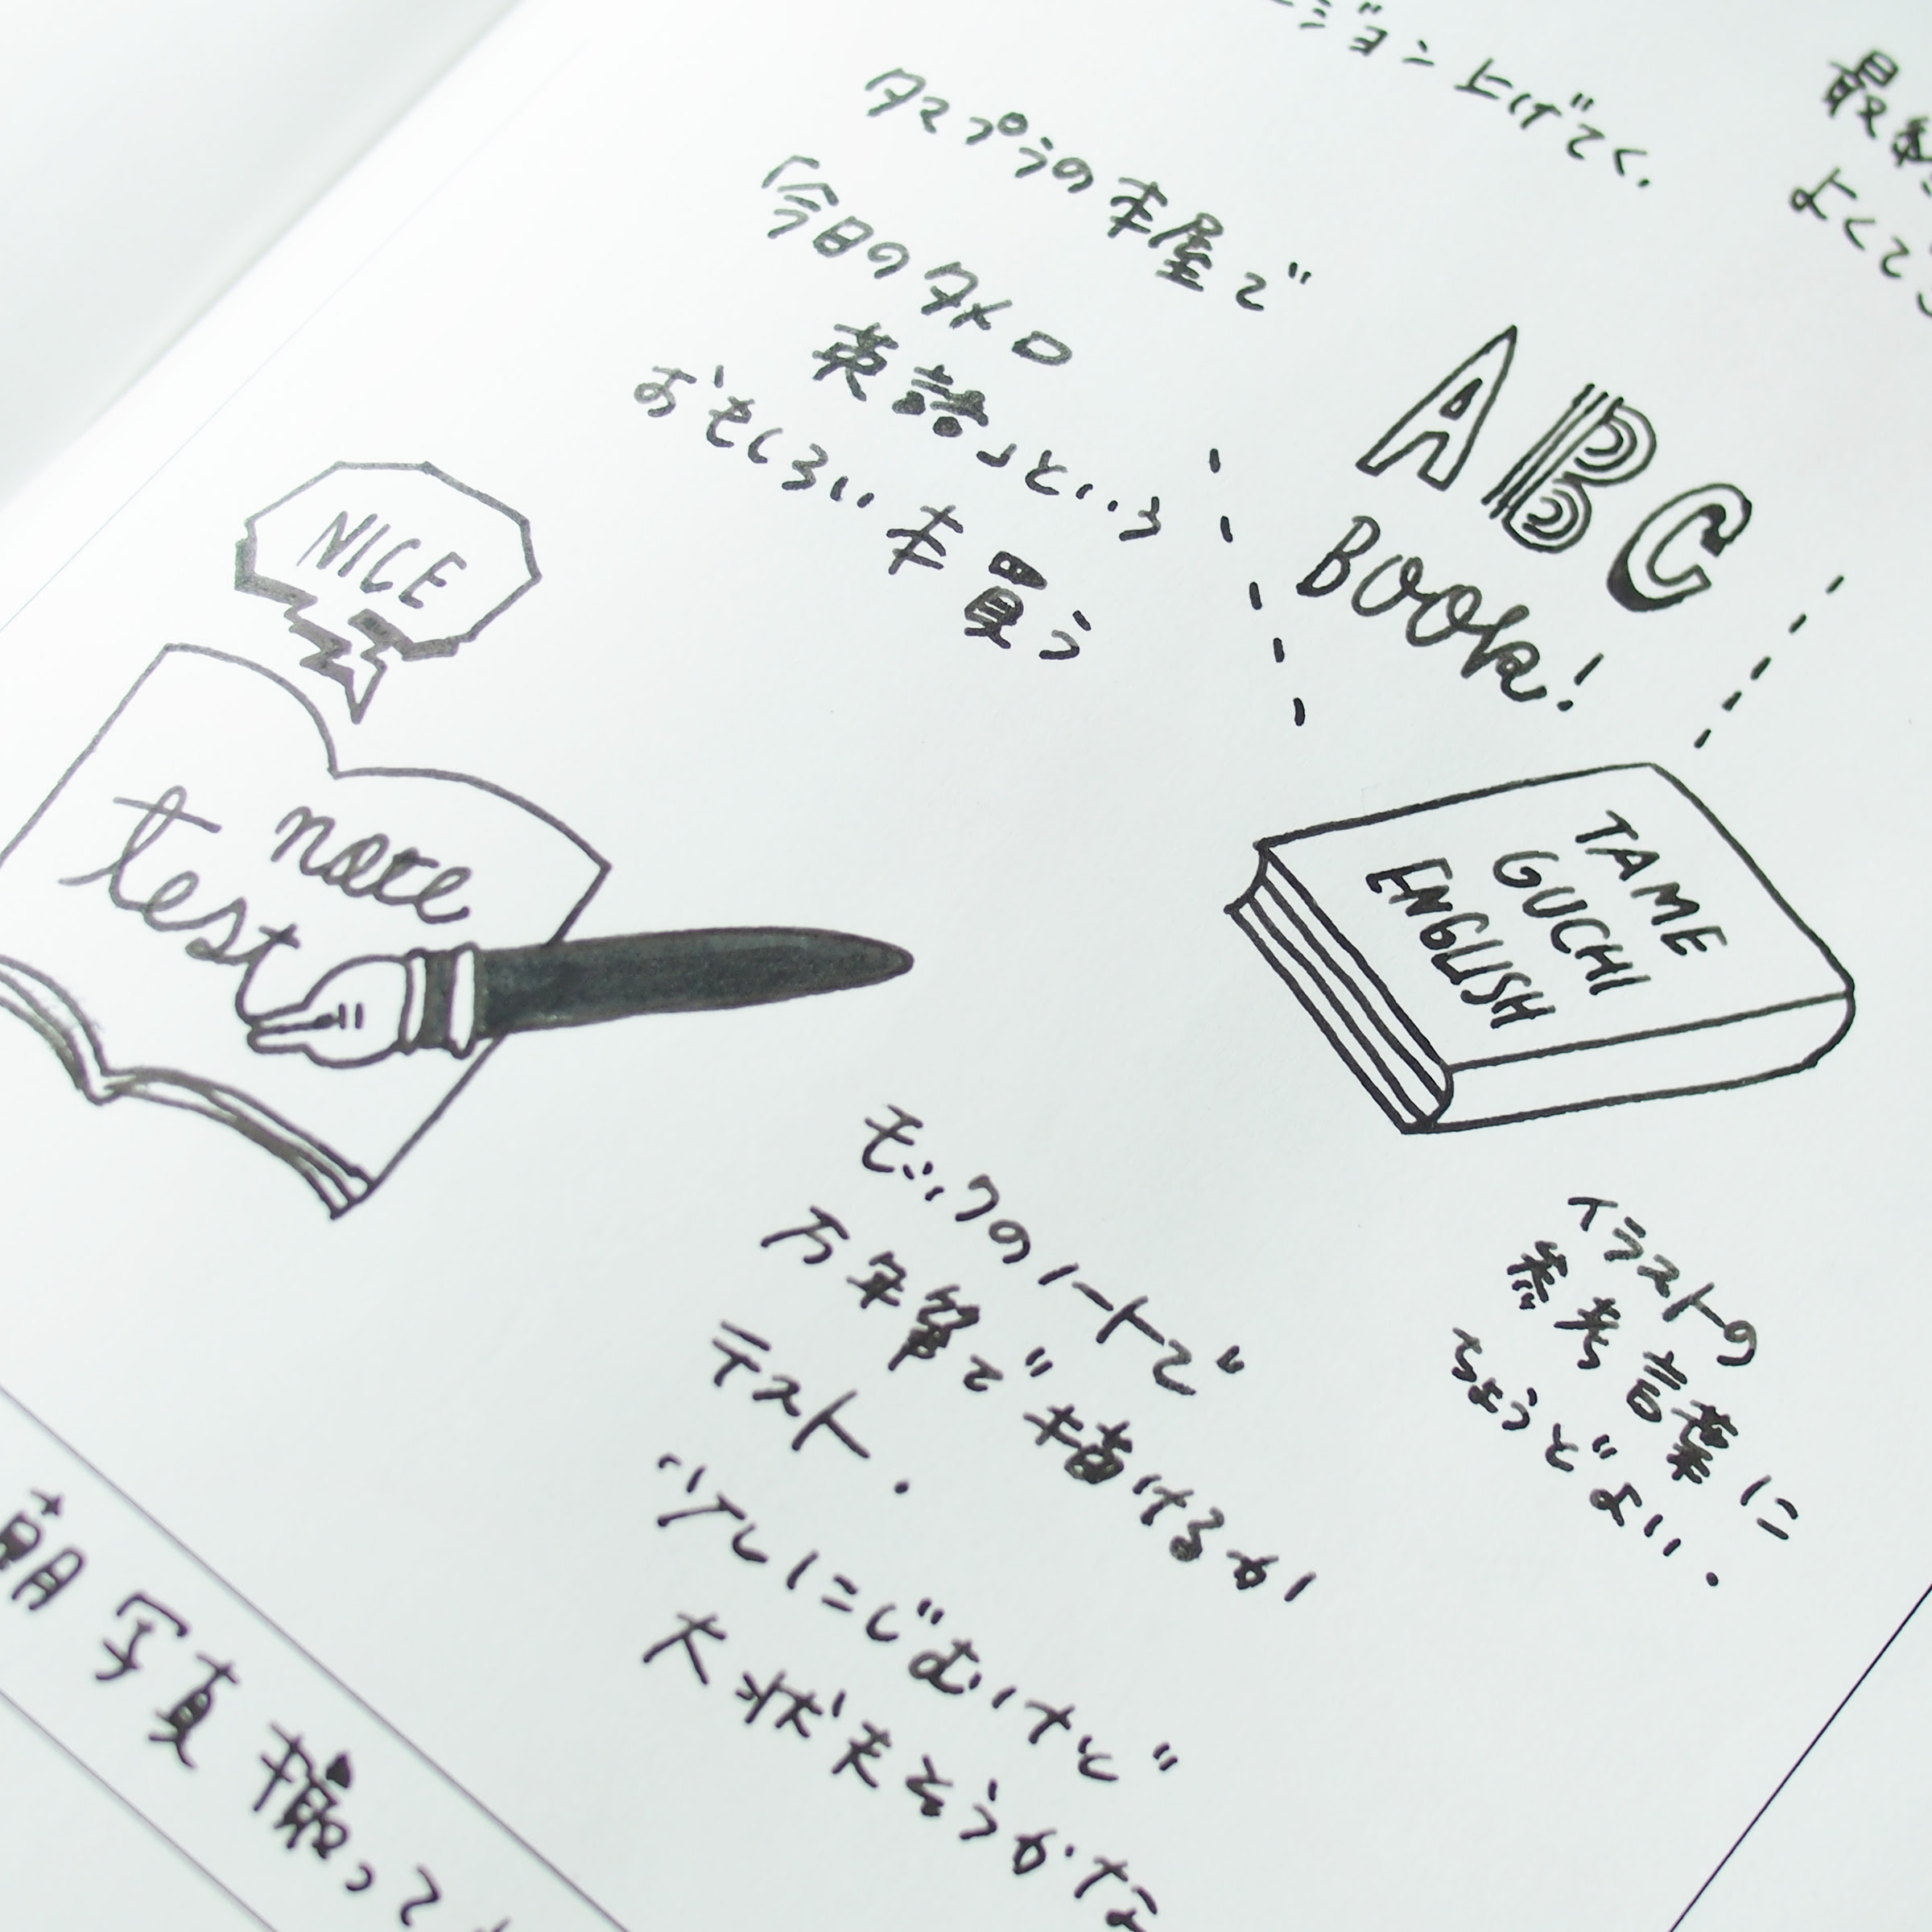 ージョン上げてく.
最終
よくで
タマプラの本屋で
「今日のタメ口
英語」という
おもしろい本買う
ABC
BOOK!
NICE
note
test
TAME
GUCHI
ENGLISH
モックのノートで
万年筆で描けるか
テスト.
少しにじむけど
大丈夫そうかな
イラストの
参考言葉に
ちょうどよい.
朝写真撮って